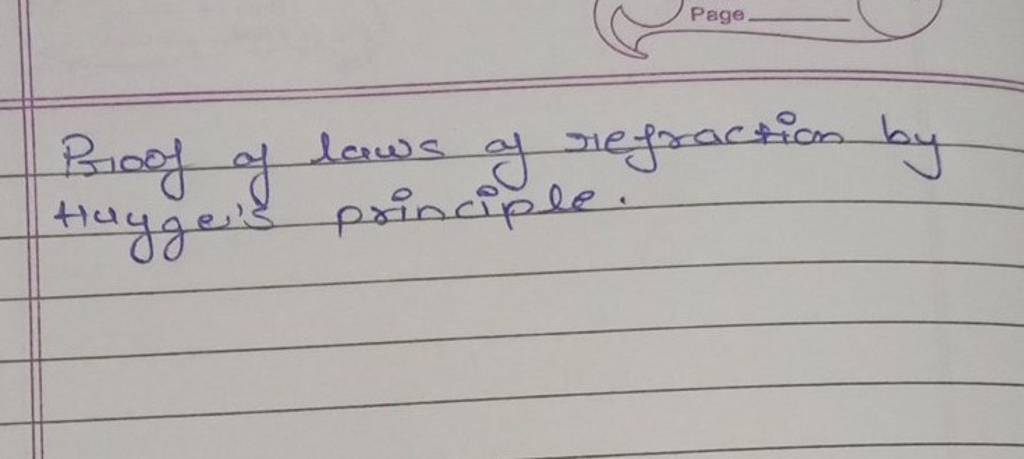 Page
Proof of laws of refraction by
Huyge's principle.